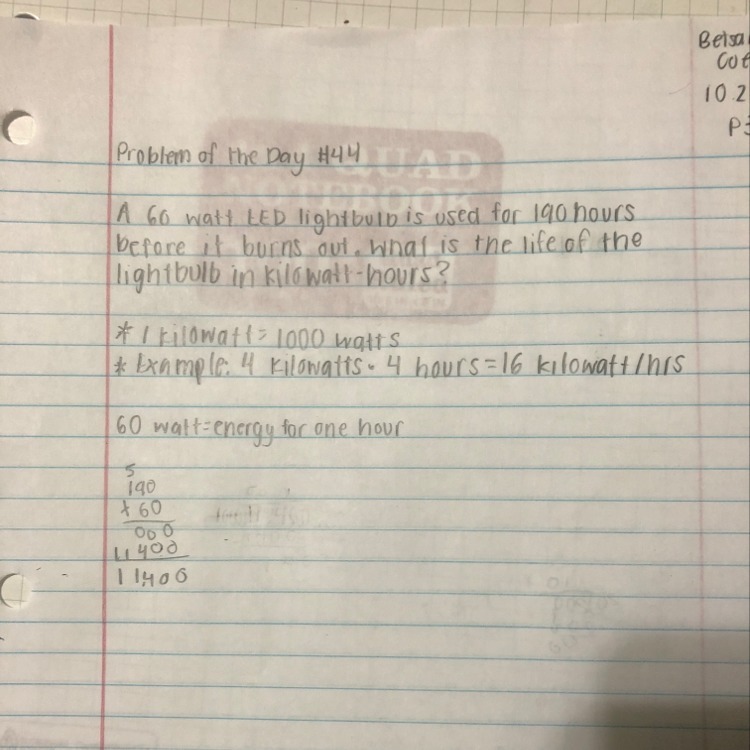 Beisa
Cot
10.2
P3
Problem of the Day #44
QUAD
NOTEBOOK
A 60 watt LED lightbulb is used for 190 hours
before it burns out. What is the life of the
lightbulb in kilowatt-hours?
* 1 kilowatt = 1000 watts
* Example: 4 kilowatts • 4 hours = 16 kilowatt/hrs
60 watt = energy for one hour
5
190
x 60
000
11400
11,400